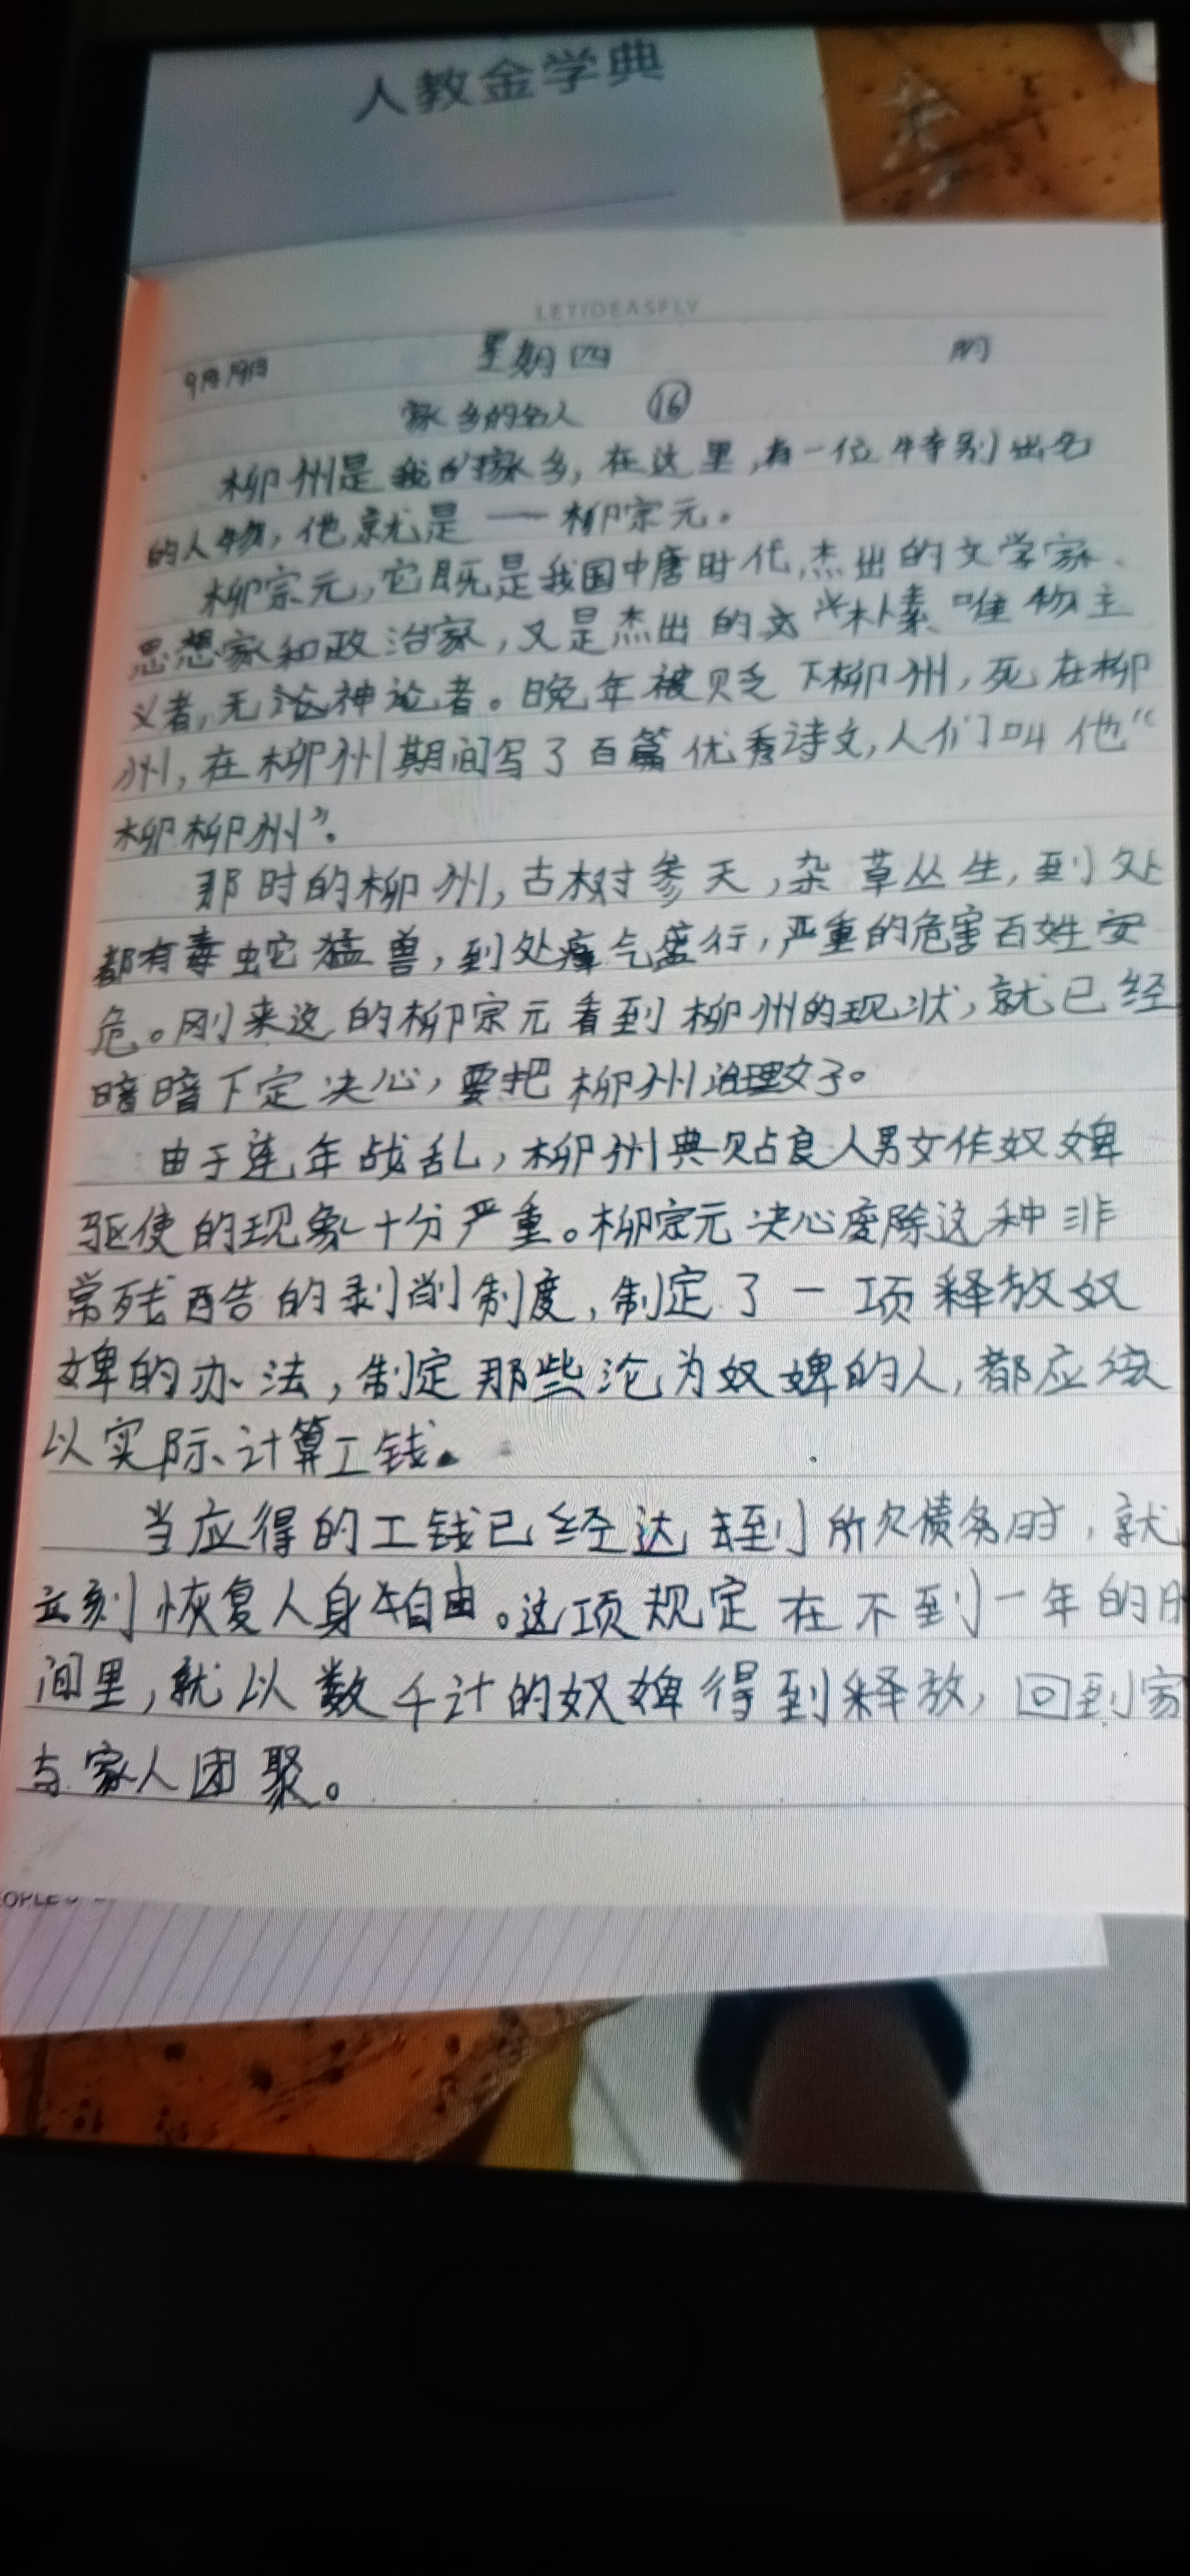 人教金学典
LETIDEASFLY
9月19日 星期四
家乡的名人 16
柳州是我的家乡，在这里，有一位特别出名
的人物，他就是——柳宗元。
柳宗元，它既是我国中唐时代，杰出的文学家、
思想家和政治家，又是杰出的 朴素唯物主
义者，无 神论者。晚年被贬下柳州，死在柳
州，在柳州期间写了百篇优秀诗文，人们叫他“
柳柳州”。
那时的柳州，古树参天，杂草丛生，到处
都有毒蛇猛兽，到处瘴气盛行，严重的危害百姓安
危。刚来这的柳宗元看到柳州的现状，就已经
暗暗下定决心，要把柳州治理好。
由于连年战乱，柳州典贴良人男女作奴婢
驱使的现象十分严重。柳宗元决心废除这种非
常残酷的剥削制度，制定了一项释放奴
婢的办法，制定那些沦为奴婢的人，都应该
以实际计算工钱。
当应得的工钱已经达到所欠债务时，就
立刻恢复人身自由。这项规定在不到一年的时
间里，就以数千计的奴婢得到释放，回到家
与家人团聚。